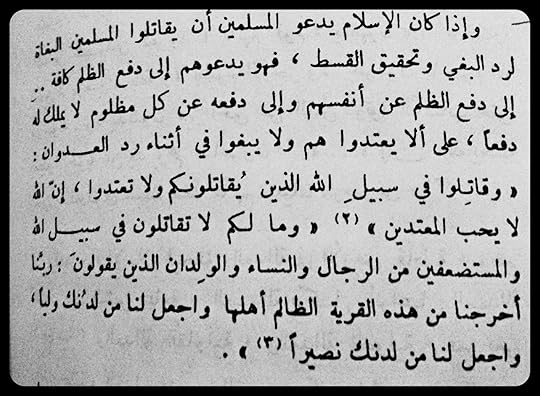 وإذا كان الإسلام يدعو المسلمين أن يقاتلوا المسلمين البغاة
لرد البغي وتحقيق القسط ، فهو يدعوهم إلى دفع الظلم كافة ..
إلى دفع الظلم عن أنفسهم وإلى دفعه عن كل مظلوم لا يملك له
دفعاً ، على ألا يعتدوا هم ولا يبغوا في أثناء رد العـدوان :
« وقاتِلوا في سبيلِ الله الذين يُقاتلونكم ولا تعتدوا ، إنّ الله
لا يحب المعتدين » (٢) « وما لكم لا تقاتلون في سبيـل الله
والمستضعفين من الرجال والنساء والوِلدان الذين يقولونَ : ربُنا
أخرجنا من هذه القرية الظالم أهلها واجعل لنا من لدُنك ولياً ،
واجعل لنا من لدنك نصيراً (٣) » .